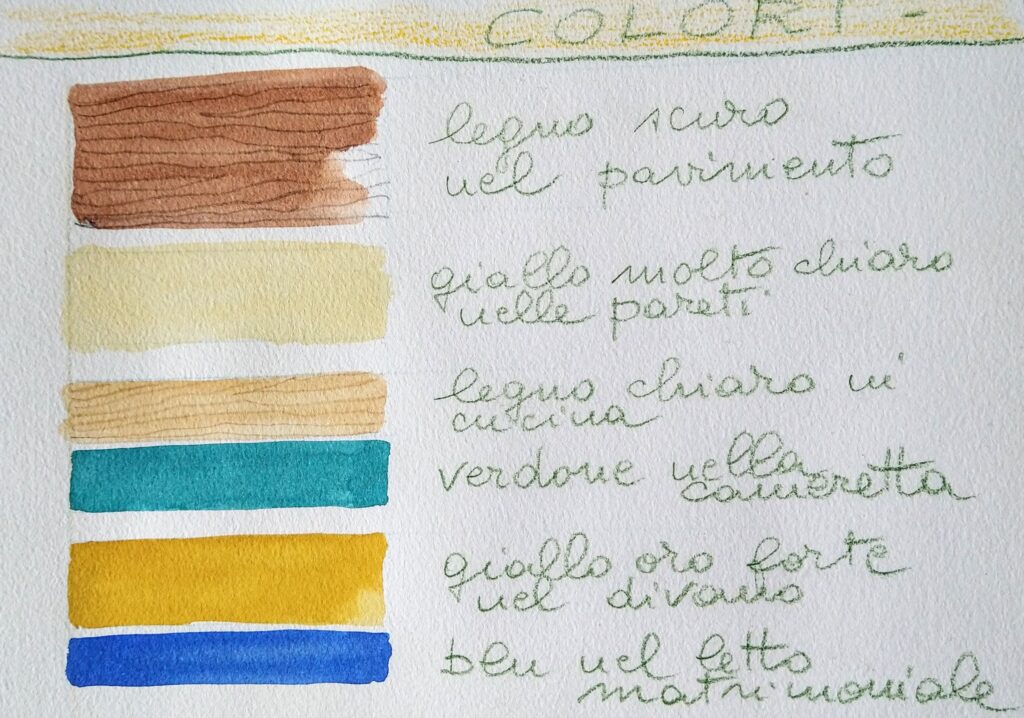 COLORI -
legno scuro
nel pavimento
giallo molto chiaro
nelle pareti
legno chiaro in
cucina
verdone nella
cameretta
giallo oro forte
nel divano
blu nel letto
matrimoniale